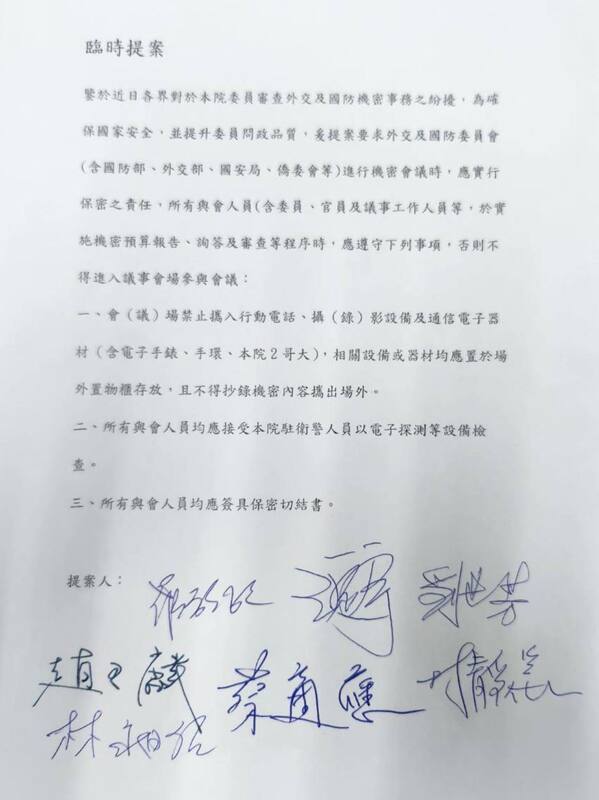 臨時提案
鑒於近日各界對於本院委員審查外交及國防機密事務之紛擾，為確
保國家安全，並提升委員問政品質，爰提案要求外交及國防委員會
(含國防部、外交部、國安局、僑委會等)進行機密會議時，應實行
保密之責任，所有與會人員(含委員、官員及議事工作人員等，於實
施機密預算報告、詢答及審查等程序時，應遵守下列事項，否則不
得進入議事會場參與會議：
一、會（議）場禁止攜入行動電話、攝（錄）影設備及通信電子器
材（含電子手錶、手環、本院2哥大），相關設備或器材均應置於場
外置物櫃存放，且不得抄錄機密內容攜出場外。
二、所有與會人員均應接受本院駐衛警人員以電子探測等設備檢
查。
三、所有與會人員均應簽具保密切結書。
提案人：
劉世芳
蔡適應